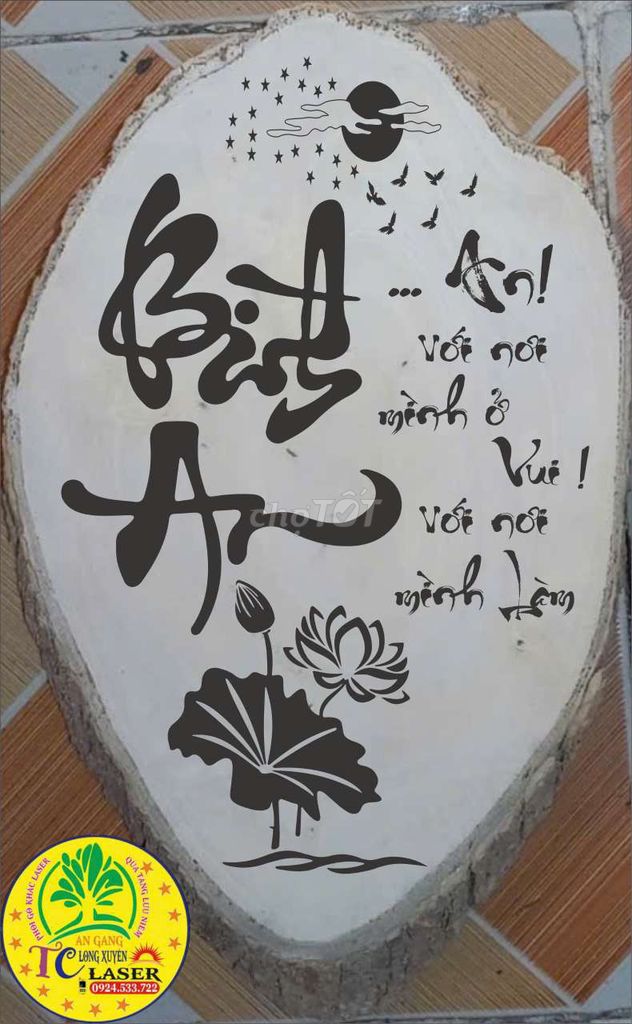 Bình
An
... An!
Với nơi
mình ở
Vui !
Với nơi
mình Làm
chợTỐT
PHÔI GỖ KHẮC LASER
QUÀ TẶNG LƯU NIỆM
AN GANG
LONG XUYÊN
TC LASER
0924.533.722